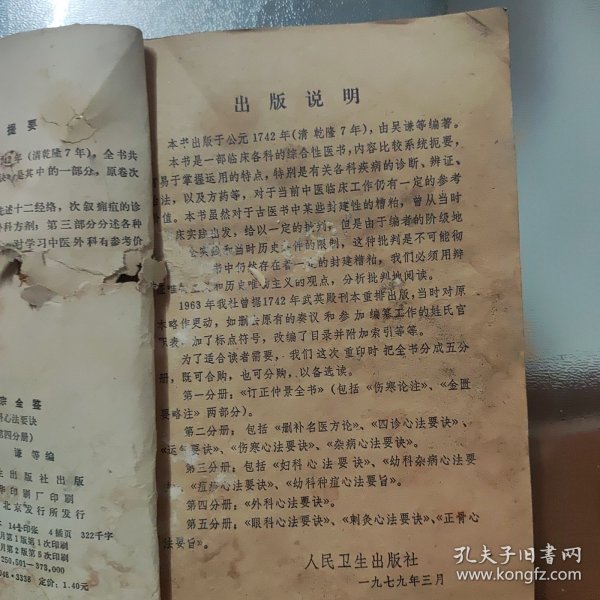 提要
年（清乾隆7年），全书共
是其中的一部分，原卷次
述十二经络，次叙痈疽的诊
外科方剂；第三部分分述各种
对学习中医外科有参考价
宗金鉴
科心法要诀
第四分册）
谦等编
生出版社出版
印刷厂印刷
北京发行所发行
印张 4插页 322千字
月第1版第1次印刷
月第2版第5次印刷
250,501—378,000
048·3338 定价：1.40元
出版说明
本书出版于公元1742年（清乾隆7年），由吴谦等编著。
本书是一部临床各科的综合性医书，内容比较系统扼要，
易于掌握运用的特点，特别是有关各科疾病的诊断、辨证、
治法，以及方药等，对于当前中医临床工作仍有一定的参考
价值。本书虽然对于古医书中某些封建性的糟粕，曾从当时
床实践出发，给以一定的批判，但是由于编者的阶级地
实践和当时历史条件的限制，这种批判是不可能彻
书中仍然存在着一定的封建糟粕，我们必须用辩
证唯物主义和历史唯物主义的观点，分析批判地阅读。
1963年我社曾据1742年武英殿刊本重排出版，当时对原
本略作更动，如删去原有的奏议和参加编纂工作的姓氏官
衔表，加了标点符号，改编了目录并附加索引等等。
为了适合读者需要，我们这次重印时把全书分成五分
册，既可合购，也可分购，以备选读。
第一分册：《订正仲景全书》（包括《伤寒论注》、《金匮
要略注》两部分）。
第二分册：包括《删补名医方论》、《四诊心法要诀》、
《运气要诀》、《伤寒心法要诀》、《杂病心法要诀》。
第三分册：包括《妇科心法要诀》、《幼科杂病心法要
诀》、《痘疹心法要诀》、《幼科种痘心法要旨》。
第四分册：《外科心法要诀》。
第五分册：《眼科心法要诀》、《刺灸心法要诀》、《正骨心
法要旨》。
人民卫生出版社
一九七九年三月
孔夫子旧书网
www.kongfz.com